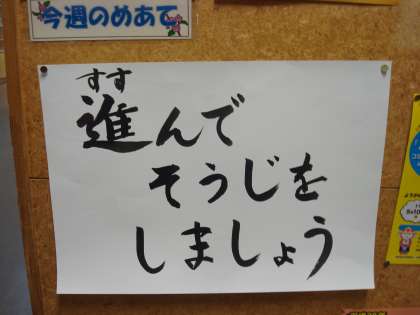 今週のめあて
すす
進んで
そうじを
しましょう